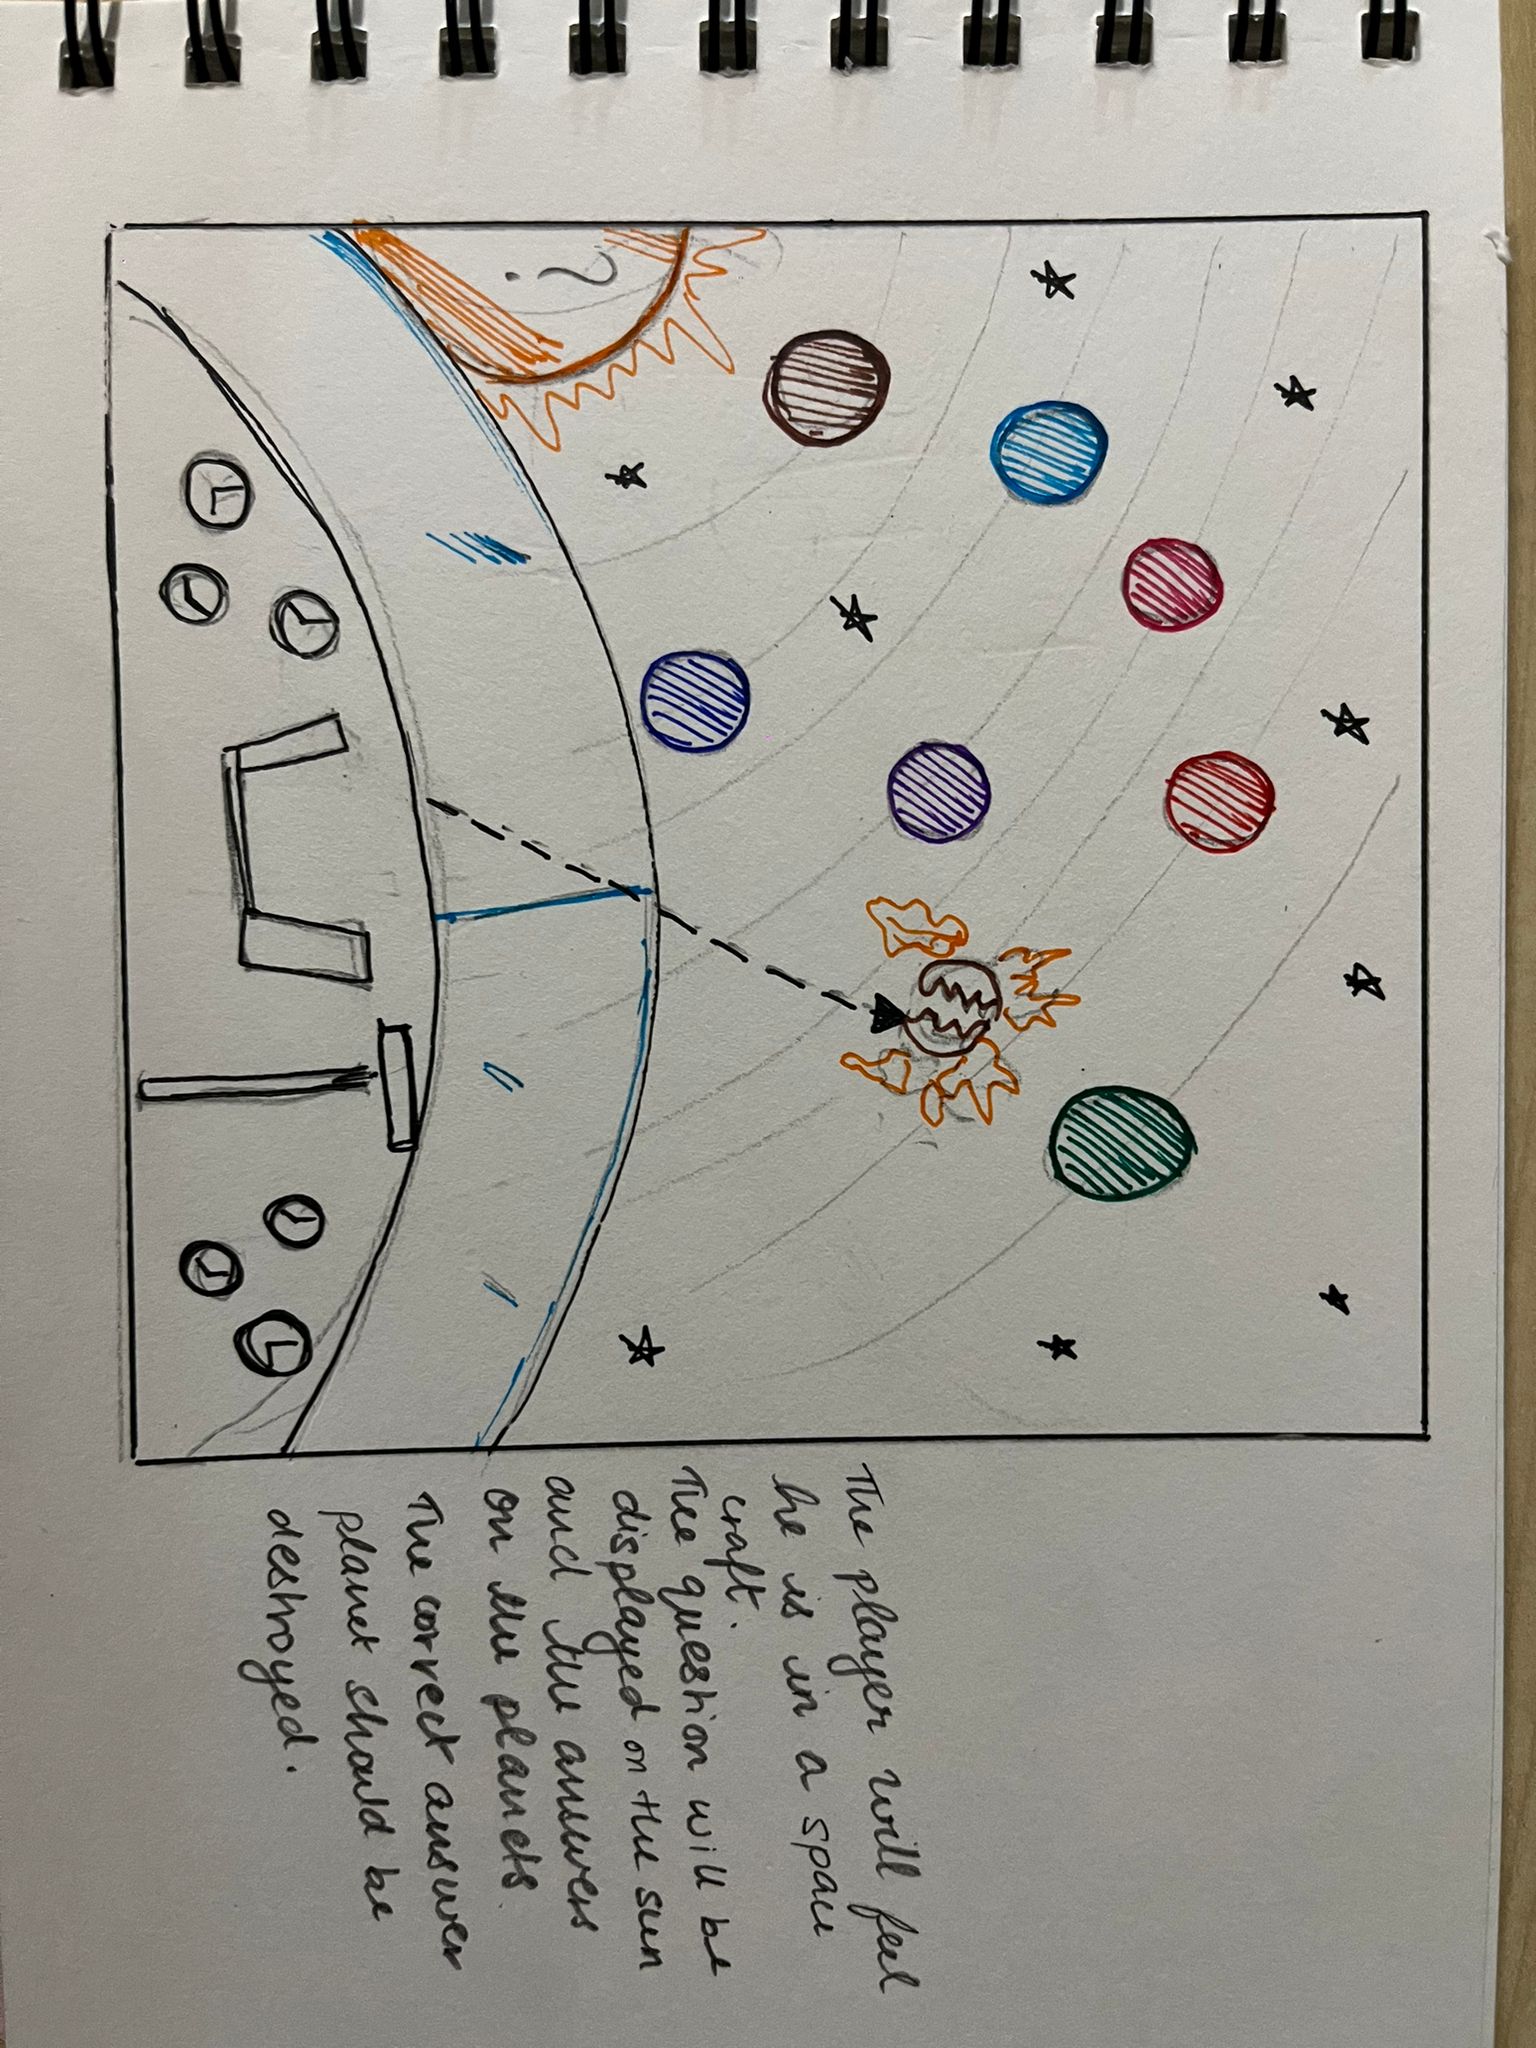 ?
The player will feel
he is in a space
craft.
The question will be
displayed on the sun
and the answers
on the planets.
The correct answer
planet should be
destroyed.